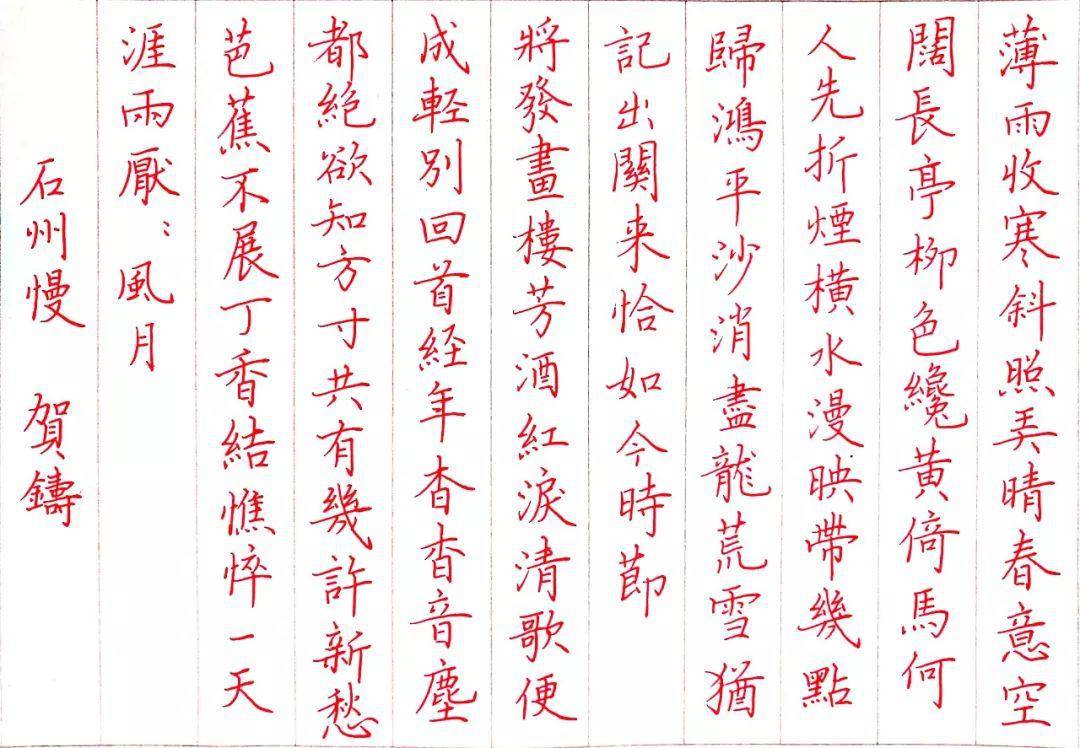 薄雨收寒斜照弄晴春意空
闊長亭柳色纔黃倚馬何
人先折煙橫水漫映帶幾點
歸鴻平沙消盡龍荒雪猶
記出關来恰如今時節
將發畫樓芳酒紅淚清歌便
成軽別回首経年杳杳音塵
都絕欲知方寸共有幾許新愁
芭蕉不展丁香結憔悴一天
涯雨厭：風月
石州慢 賀鑄